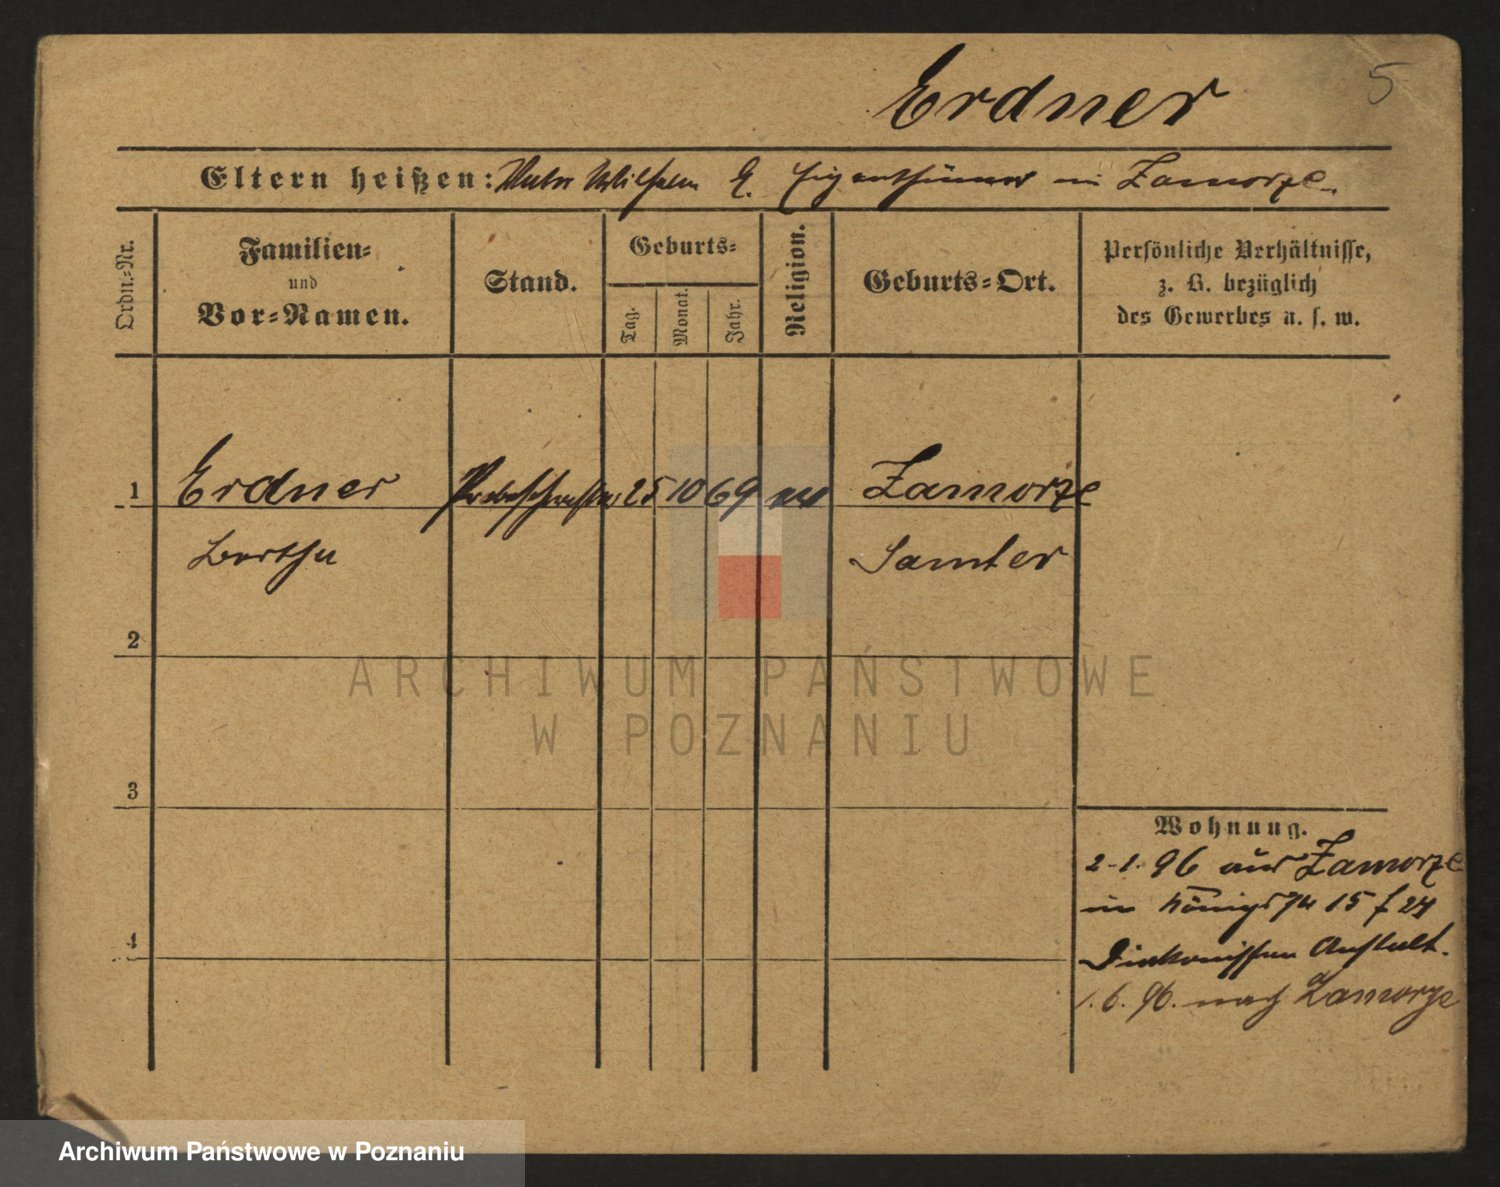 5
Erdner
Eltern heißen: Vater Wilhelm E. Eigenthümer in Zamorze.
Ordn.-Nr.
Familien-
und
Vor-Namen.
Stand.
Geburts-
Tag.
Monat.
Jahr.
Religion.
Geburts-Ort.
Persönliche Verhältnisse,
z. B. bezüglich
des Gewerbes u. s. w.
1 Erdner Probeschwester 25 10 69 Zamorze
Bertha Samter
2
3
4
Wohnung.
2.1.96 aus Zamorze
in Königs 15
Diakonissen Anstalt.
1.6.96. nach Zamorze
ARCHIWUM PAŃSTWOWE
W POZNANIU
Archiwum Państwowe w Poznaniu